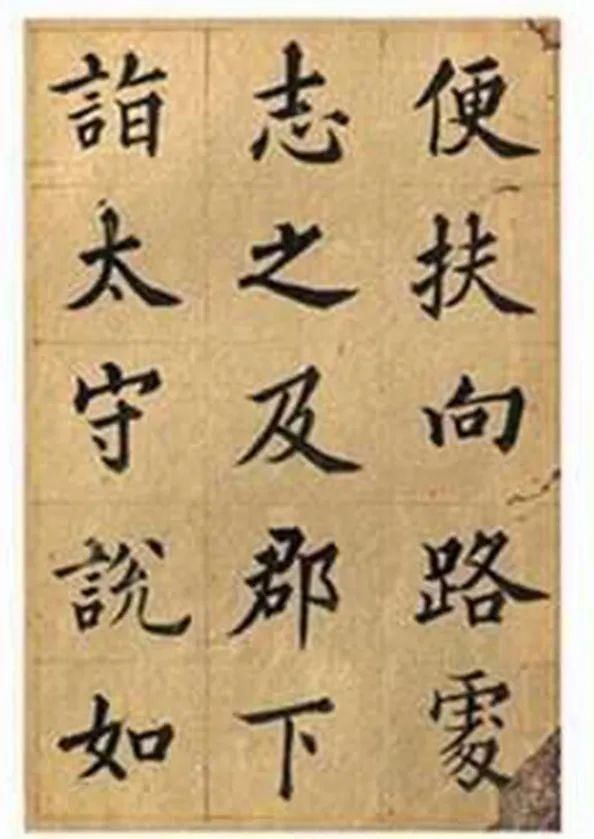 便扶向路處
志之及郡下
詣太守說如